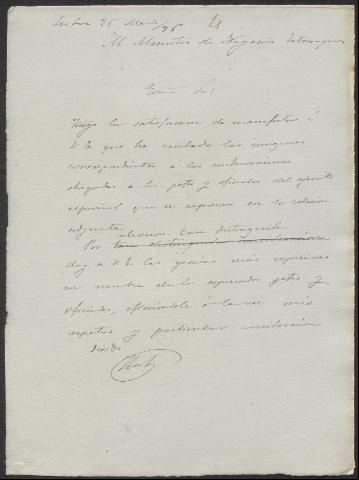 Lisboa 26 Marzo/76
Al Ministro de Negocios Extrangeros
Excmo Sor
Tengo la satisfaccion de manifestar á
V. E. que he recibido las insignias
correspondientes á las condecoraciones
otorgadas á los gefes y oficiales del ejercito
español que se expresan en la relacion
adjunta.
atencion tan distinguida
Por tan distinguida consideracion
doy á V. E. las gracias mas expresivas
en nombre de los expresados gefes y
oficiales, ofreciendole á la vez mis
respetos y particular consideracion
Dios &.